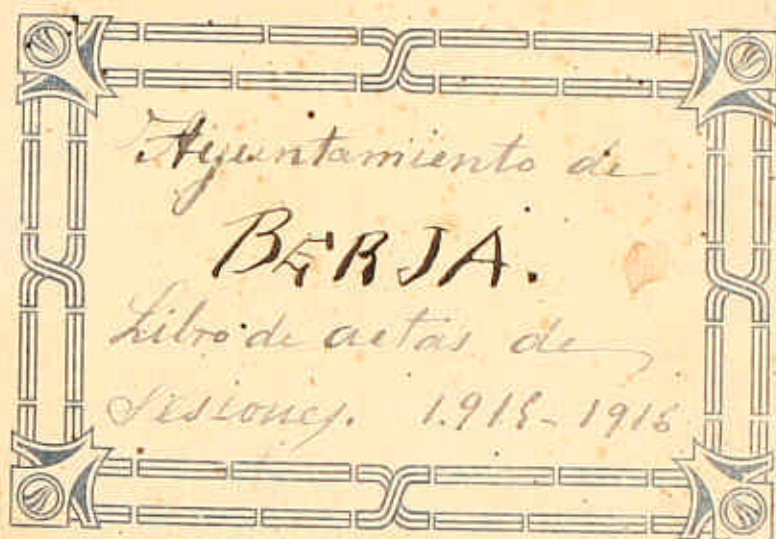 Ayuntamiento de
BERJA.
Libro de actas de
sesiones. 1.915-1916